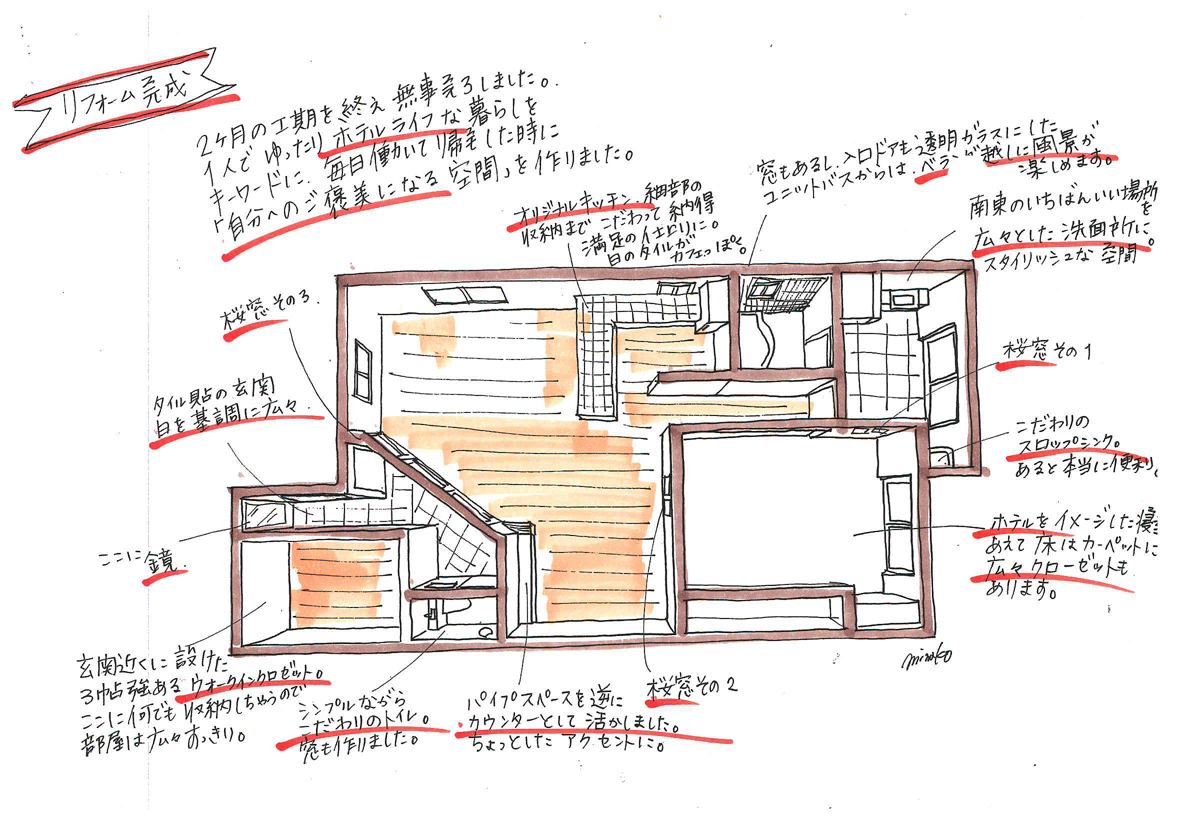 リフォーム完成
2ヶ月の工期を終え 無事完了しました。
1人で ゆったり ホテルライフな 暮らしを
キーワードに、毎日働いて帰宅した時に
「自分へのご褒美になる 空間」を 作りました。
オリジナルキッチン。細部の
収納まで こだわって 納得
満足の仕上りに。
白のタイルが
カフェっぽく。
窓もあるし、入口ドアも透明ガラスにした
ユニットバスからは、ベランダ越しに風景が
楽しめます。
南東のいちばんいい場所
を
広々とした 洗面所に。
スタイリッシュな 空間
桜窓 その3.
桜窓 その1
タイル貼の玄関
白を基調に広々.
こだわりの
スロップシンク。
あると本当に便利.
ホテルをイメージした寝室
あえて 床は カーペットに
広々クローゼットも
あります。
ここに 鏡.
玄関近くに 設けた
3帖強ある ウオークインクロゼット。
ここに何でも 収納しちゃうので
部屋は広々すっきり。
シンプルながら
こだわりのトイレ。
窓も作りました。
パイプスペースを 逆に
カウンターとして 活かしました。
ちょっとした アクセントに。
桜窓 その2
minako